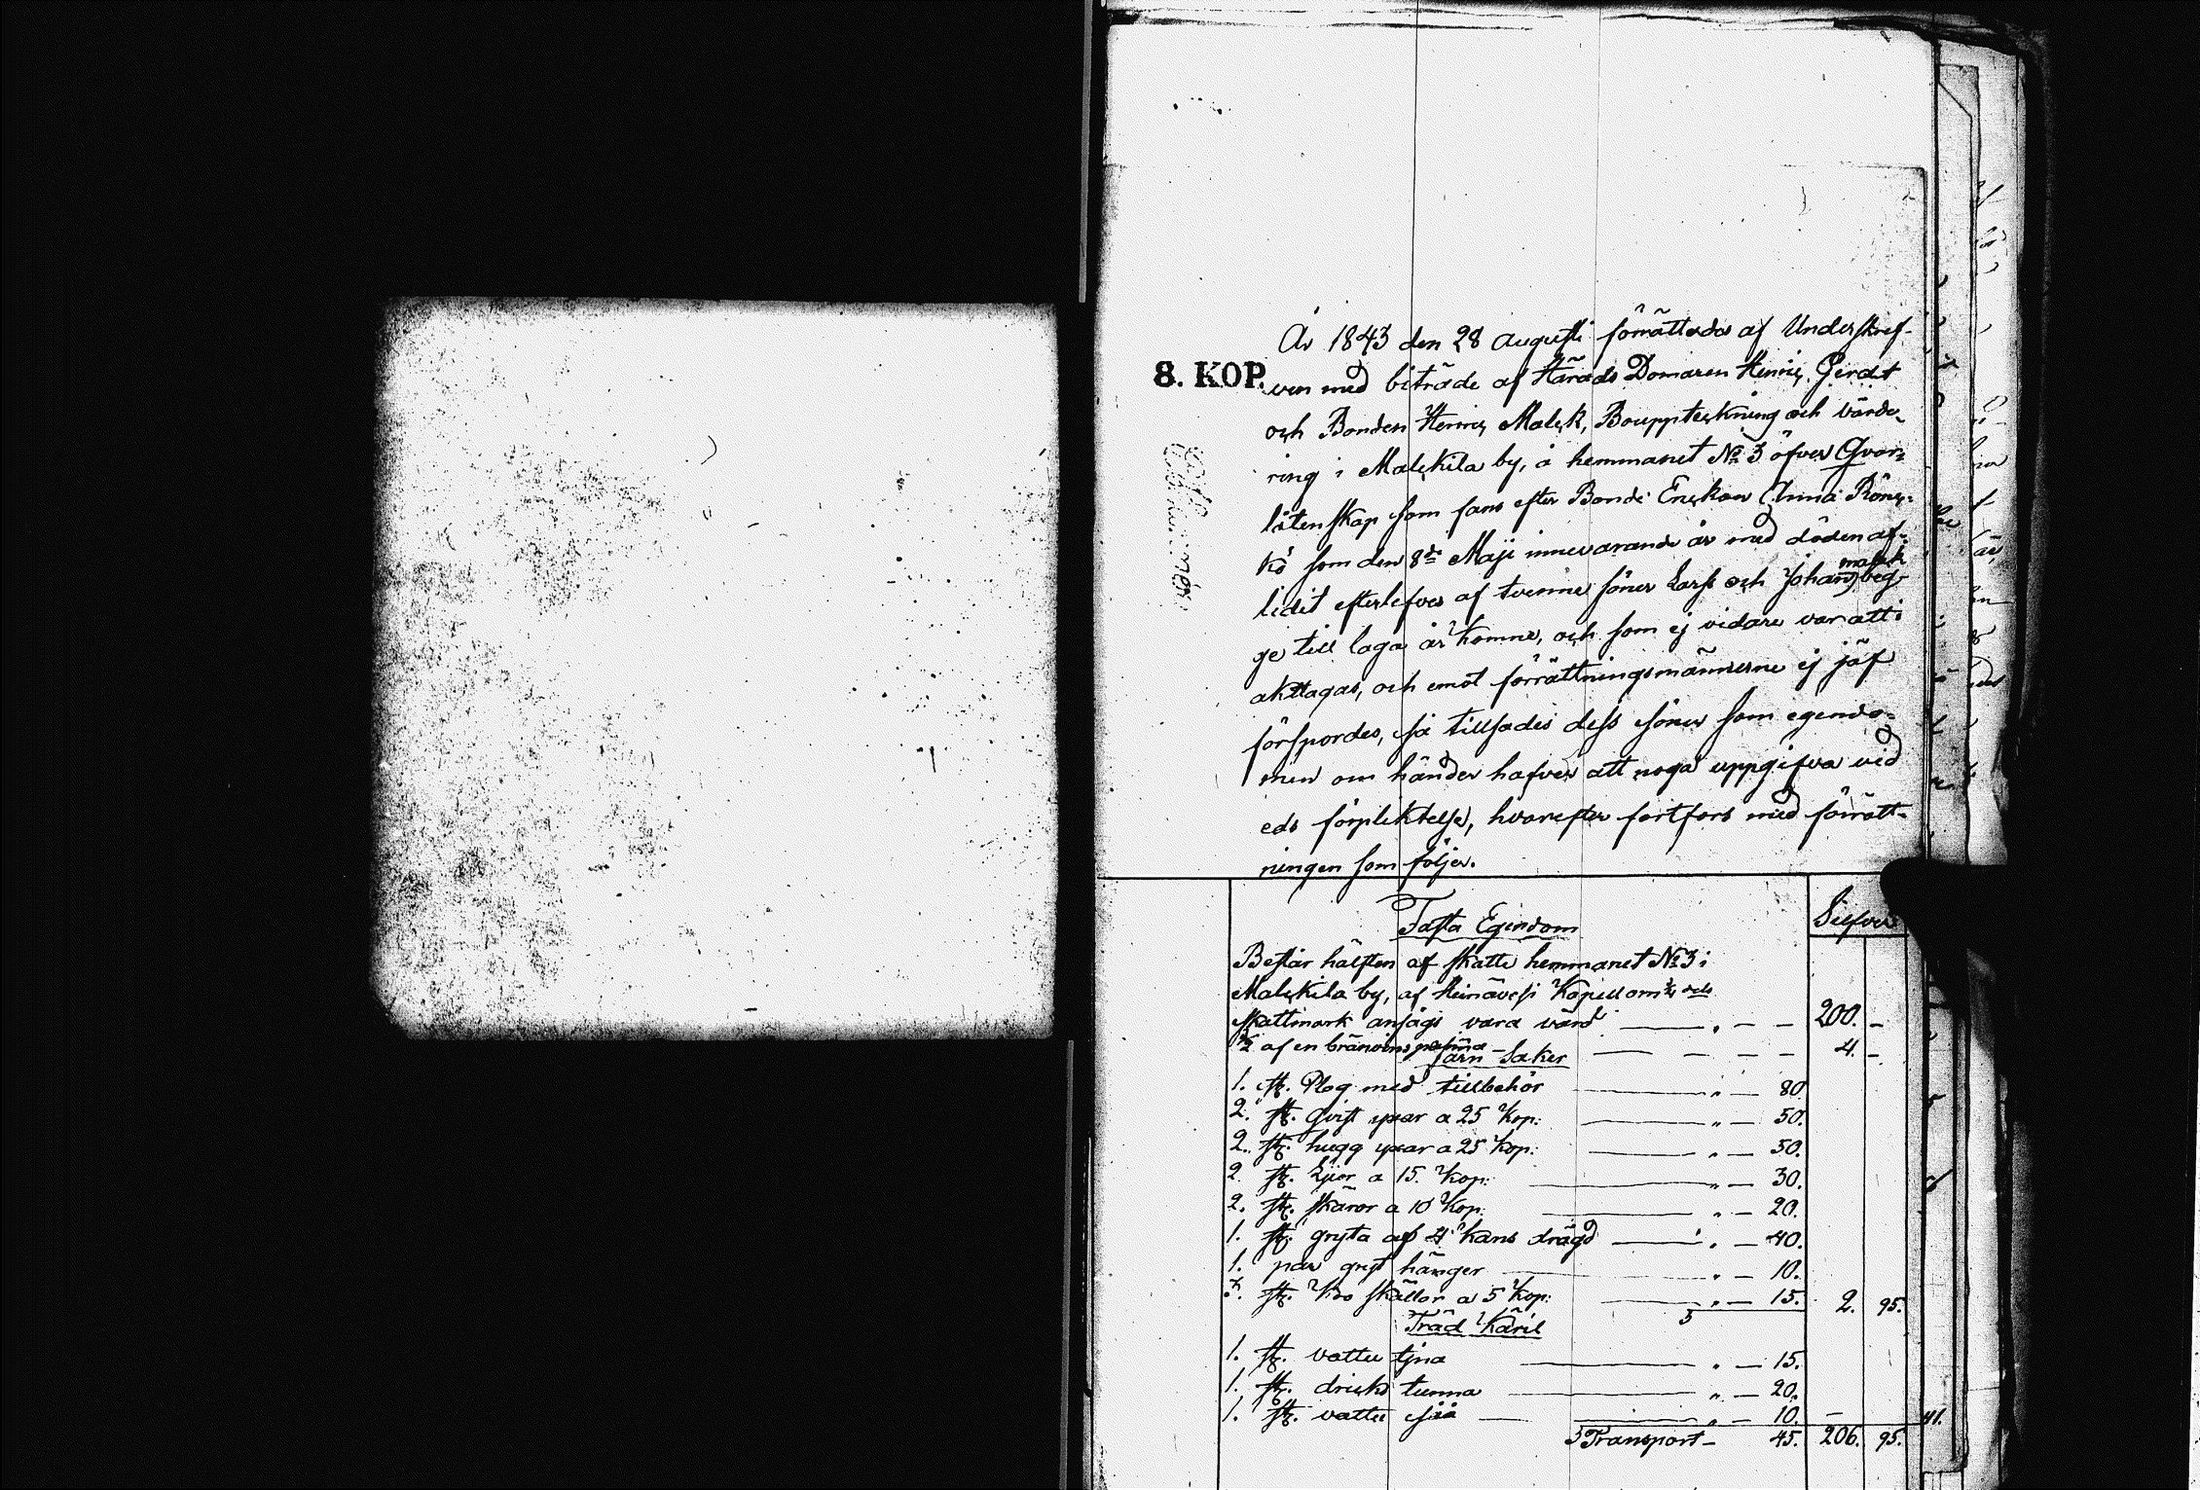 År 1843 den 28 Augusti förrättades af Underskref-
8. KOP.
ven med biträde af Härads Domaren Henric Gerdt
och Bonden Henric Malck, Bouppteckning och värde-
ring i Malckila by, å hemmanet No 3 öfver Qvar-
låtenskap som fans efter Bonde Enckan Anna Rönc-
kö som den 8de Maji innevarande år med döden af-
lidit efterlefves af tvenne söner Lars och Johan malck beg-
ge till laga år komne, och som ej vidare var att i
akttagas, och emot förrättningsmännerne ej jäf
förspordes, så tillsades dess söner som egendo-
men om händer hafver att noga uppgifva vid
eds förpliktelse, hvarefter fortfors med förrätt-
ningen som följer.
Fasta Egendom
Silfver
Består hälften af skatte hemmanet No 3 i
Malckila by, af Heinävesi Kapell om
skattmark ansågs vara värd — " — — 200. —
1/2 af en bränvins panna — — — — 4. —
Järn Saker
1. st. Plog med tillbehör — " — 80.
2. st. qvist yxar a 25 Kop: — " — 50.
2. st. hugg yxar a 25 Kop: — " — 50.
2. st. Lijor a 15. Kop: — " — 30.
2. st. skäror a 10 Kop: — " — 20.
1. st. gryta af 4 kans drägd — " — 40.
1. par gryt hänger — " — 10.
3. st. Ko skällor a 5 Kop: — " — 15. 2. 95.
Träd Käril
1. st. vattu tjna — " — 15.
1. st. dricks tunna — " — 20.
1. st. vattu så — " — 10. —
Transport — 45. 206. 95.